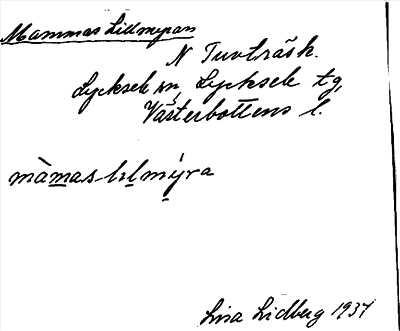 Mammas Lidmyran
N Tuvträsk.
Lycksele sn, Lycksele tg,
Västerbottens l.
Lisa Lidberg 1937